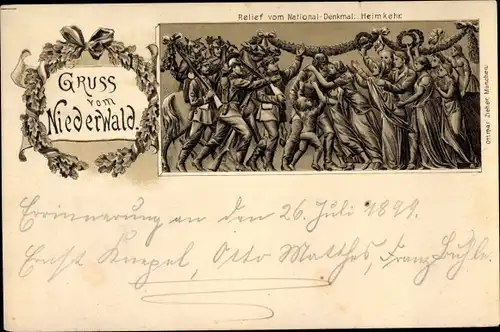 Relief vom National-Denkmal: Heimkehr.
GRUSS
vom
Niederwald.
Ottmar Zieher, München.
Erinnerung an den 26. Juli 1899.
Ernst Knepel, Otto Matthes, Franz